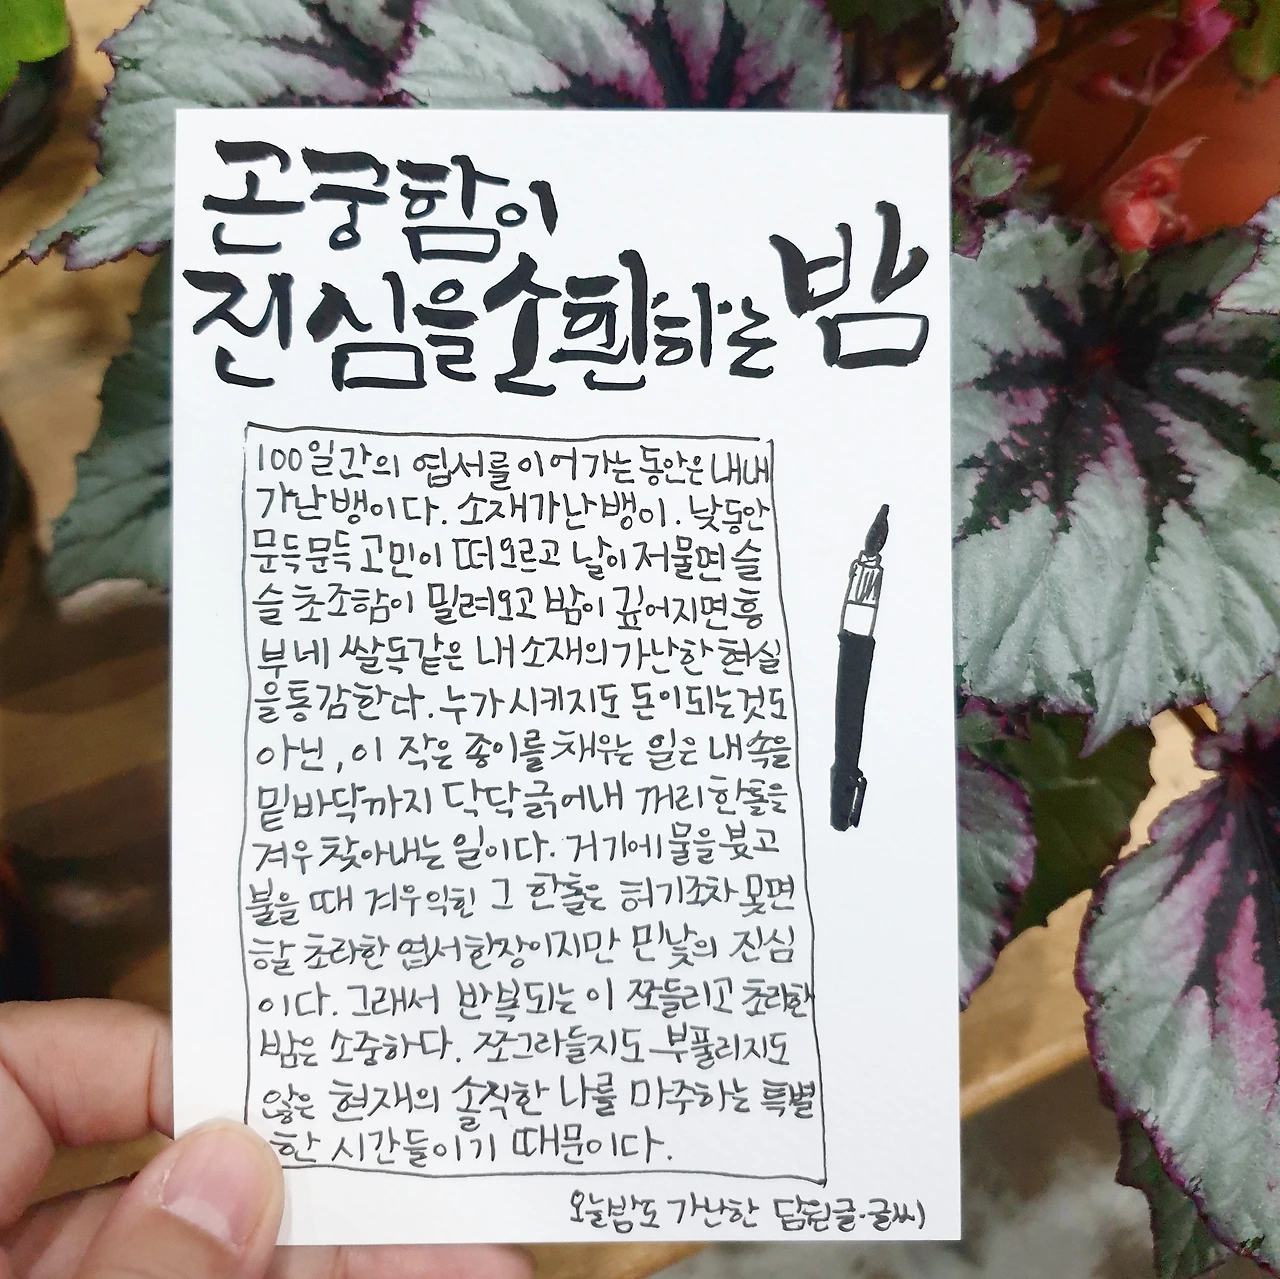 곤궁함이
진심을 소환하는 밤
100일간의 엽서를 이어가는 동안은 내내
가난뱅이다. 소재가난뱅이. 낮동안
문득문득 고민이 떠오르고 날이 저물면 슬
슬 초조함이 밀려오고 밤이 깊어지면 흥
부네 쌀독같은 내 소재의 가난한 현실
을 통감한다. 누가 시키지도 돈이 되는것도
아닌, 이 작은 종이를 채우는 일은 내 속을
밑바닥까지 닥닥 긁어내 꺼리 한톨을
겨우 찾아내는 일이다. 거기에 물을 붓고
불을 때 겨우 익힌 그 한톨은 허기조차 못면
할 초라한 엽서 한장이지만 민낯의 진심
이다. 그래서 반복되는 이 쪼들리고 초라한
밤은 소중하다. 쪼그라들지도 부풀리지도
않은 현재의 솔직한 나를 마주하는 특별
한 시간들이기 때문이다.
오늘밤도 가난한 담원글·글씨